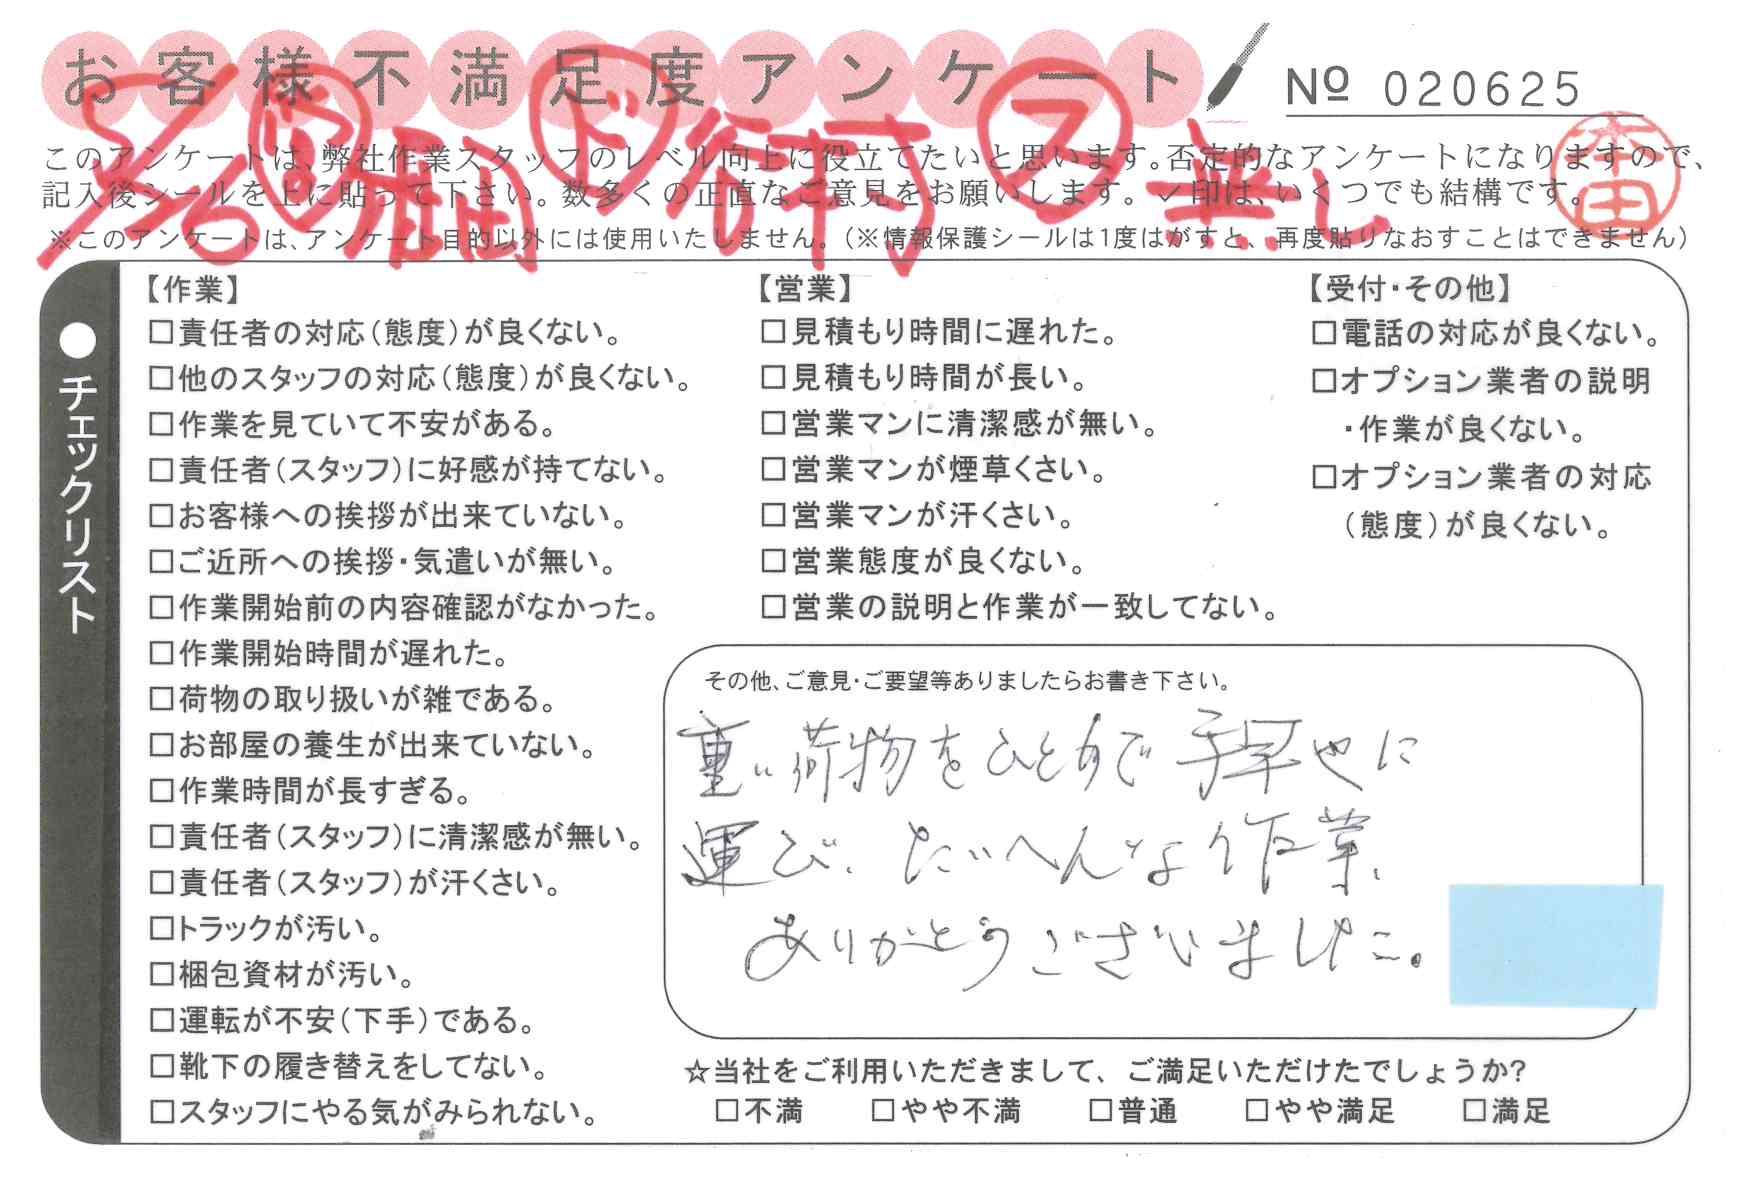 お客様不満足度アンケート
№ 020625
㊡ ド 谷村 フ 無し
このアンケートは、弊社作業スタッフのレベル向上に役立てたいと思います。否定的なアンケートになりますので、
記入後シールを上に貼って下さい。数多くの正直なご意見をお願いします。✓印は、いくつでも結構です。
※このアンケートは、アンケート目的以外には使用いたしません。(※情報保護シールは1度はがすと、再度貼りなおすことはできません)
●チェックリスト
【作業】
□責任者の対応(態度)が良くない。
□他のスタッフの対応(態度)が良くない。
□作業を見ていて不安がある。
□責任者(スタッフ)に好感が持てない。
□お客様への挨拶が出来ていない。
□ご近所への挨拶・気遣いが無い。
□作業開始前の内容確認がなかった。
□作業開始時間が遅れた。
□荷物の取り扱いが雑である。
□お部屋の養生が出来ていない。
□作業時間が長すぎる。
□責任者(スタッフ)に清潔感が無い。
□責任者(スタッフ)が汗くさい。
□トラックが汚い。
□梱包資材が汚い。
□運転が不安(下手)である。
□靴下の履き替えをしてない。
□スタッフにやる気がみられない。
【営業】
□見積もり時間に遅れた。
□見積もり時間が長い。
□営業マンに清潔感が無い。
□営業マンが煙草くさい。
□営業マンが汗くさい。
□営業態度が良くない。
□営業の説明と作業が一致してない。
【受付・その他】
□電話の対応が良くない。
□オプション業者の説明
・作業が良くない。
□オプション業者の対応
(態度)が良くない。
その他、ご意見・ご要望等ありましたらお書き下さい。
重い荷物をひとりで手早やに
運び、たいへんな作業、
ありがとうございました。
☆当社をご利用いただきまして、ご満足いただけたでしょうか?
□不満 □やや不満 □普通 □やや満足 □満足